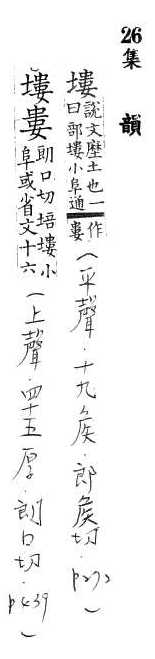 26集 韻
塿說文㙻土也一曰部塿小阜通作婁(平聲.十九侯.郎侯切.p272)
塿婁朗口切培塿小阜或省文十六(上聲.四十五厚.朗口切.p439)